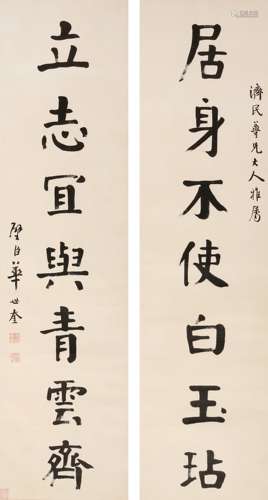 濟民尊兄大人雅屬
居身不使白玉玷
立志宜與青雲齊
璧臣華世奎